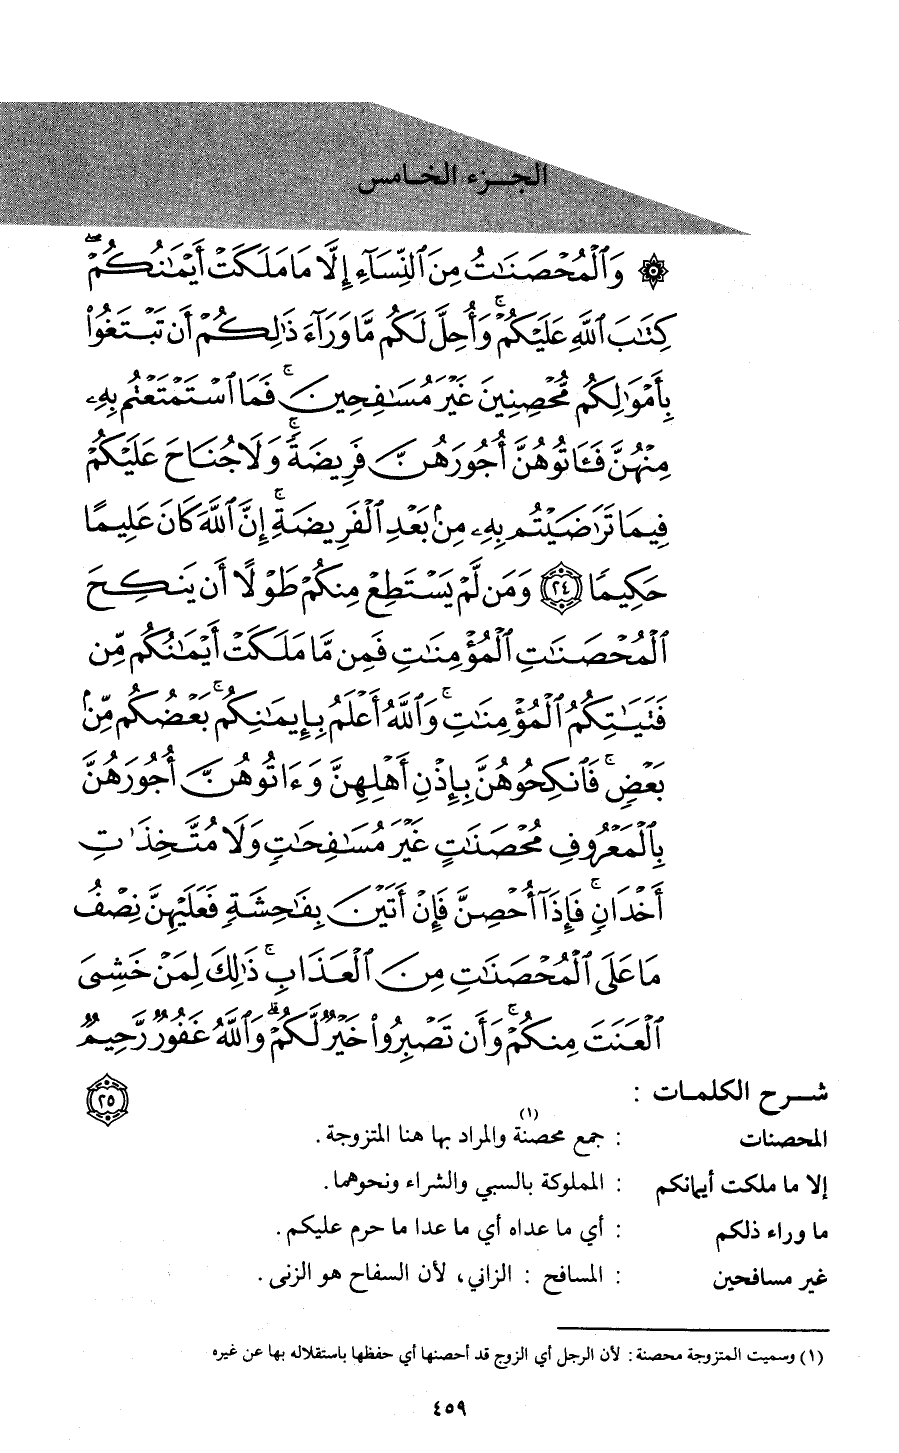 الجـــزء الخـامس
۞ وَٱلْمُحْصَنَٰتُ مِنَ ٱلنِّسَآءِ إِلَّا مَا مَلَكَتْ أَيْمَٰنُكُمْ ۖ
كِتَٰبَ ٱللَّهِ عَلَيْكُمْ ۚ وَأُحِلَّ لَكُم مَّا وَرَآءَ ذَٰلِكُمْ أَن تَبْتَغُوا۟
بِأَمْوَٰلِكُم مُّحْصِنِينَ غَيْرَ مُسَٰفِحِينَ ۚ فَمَا ٱسْتَمْتَعْتُم بِهِۦ
مِنْهُنَّ فَـَٔاتُوهُنَّ أُجُورَهُنَّ فَرِيضَةً ۚ وَلَا جُنَاحَ عَلَيْكُمْ
فِيمَا تَرَٰضَيْتُم بِهِۦ مِنۢ بَعْدِ ٱلْفَرِيضَةِ ۚ إِنَّ ٱللَّهَ كَانَ عَلِيمًا
حَكِيمًا ٢٤ وَمَن لَّمْ يَسْتَطِعْ مِنكُمْ طَوْلًا أَن يَنكِحَ
ٱلْمُحْصَنَٰتِ ٱلْمُؤْمِنَٰتِ فَمِن مَّا مَلَكَتْ أَيْمَٰنُكُم مِّن
فَتَيَٰتِكُمُ ٱلْمُؤْمِنَٰتِ ۚ وَٱللَّهُ أَعْلَمُ بِإِيمَٰنِكُم ۚ بَعْضُكُم مِّنۢ
بَعْضٍ ۚ فَٱنكِحُوهُنَّ بِإِذْنِ أَهْلِهِنَّ وَءَاتُوهُنَّ أُجُورَهُنَّ
بِٱلْمَعْرُوفِ مُحْصَنَٰتٍ غَيْرَ مُسَٰفِحَٰتٍ وَلَا مُتَّخِذَٰتِ
أَخْدَانٍ ۚ فَإِذَآ أُحْصِنَّ فَإِنْ أَتَيْنَ بِفَٰحِشَةٍ فَعَلَيْهِنَّ نِصْفُ
مَا عَلَى ٱلْمُحْصَنَٰتِ مِنَ ٱلْعَذَابِ ۚ ذَٰلِكَ لِمَنْ خَشِىَ
ٱلْعَنَتَ مِنكُمْ ۚ وَأَن تَصْبِرُوا۟ خَيْرٌ لَّكُمْ ۗ وَٱللَّهُ غَفُورٌ رَّحِيمٌ
٢٥
شـــرح الكلمـات :
المحصنات : جمع محصنة(١) والمراد بها هنا المتزوجة .
إلا ما ملكت أيمانكم : المملوكة بالسبي والشراء ونحوهما .
ما وراء ذلكم : أي ما عداه أي ما عدا ما حرم عليكم .
غير مسافحين : المسافح : الزاني ، لأن السفاح هو الزنى .
(١) وسميت المتزوجة محصنة : لأن الرجل أي الزوج قد أحصنها أي حفظها باستقلاله بها عن غيره
٤٥٩